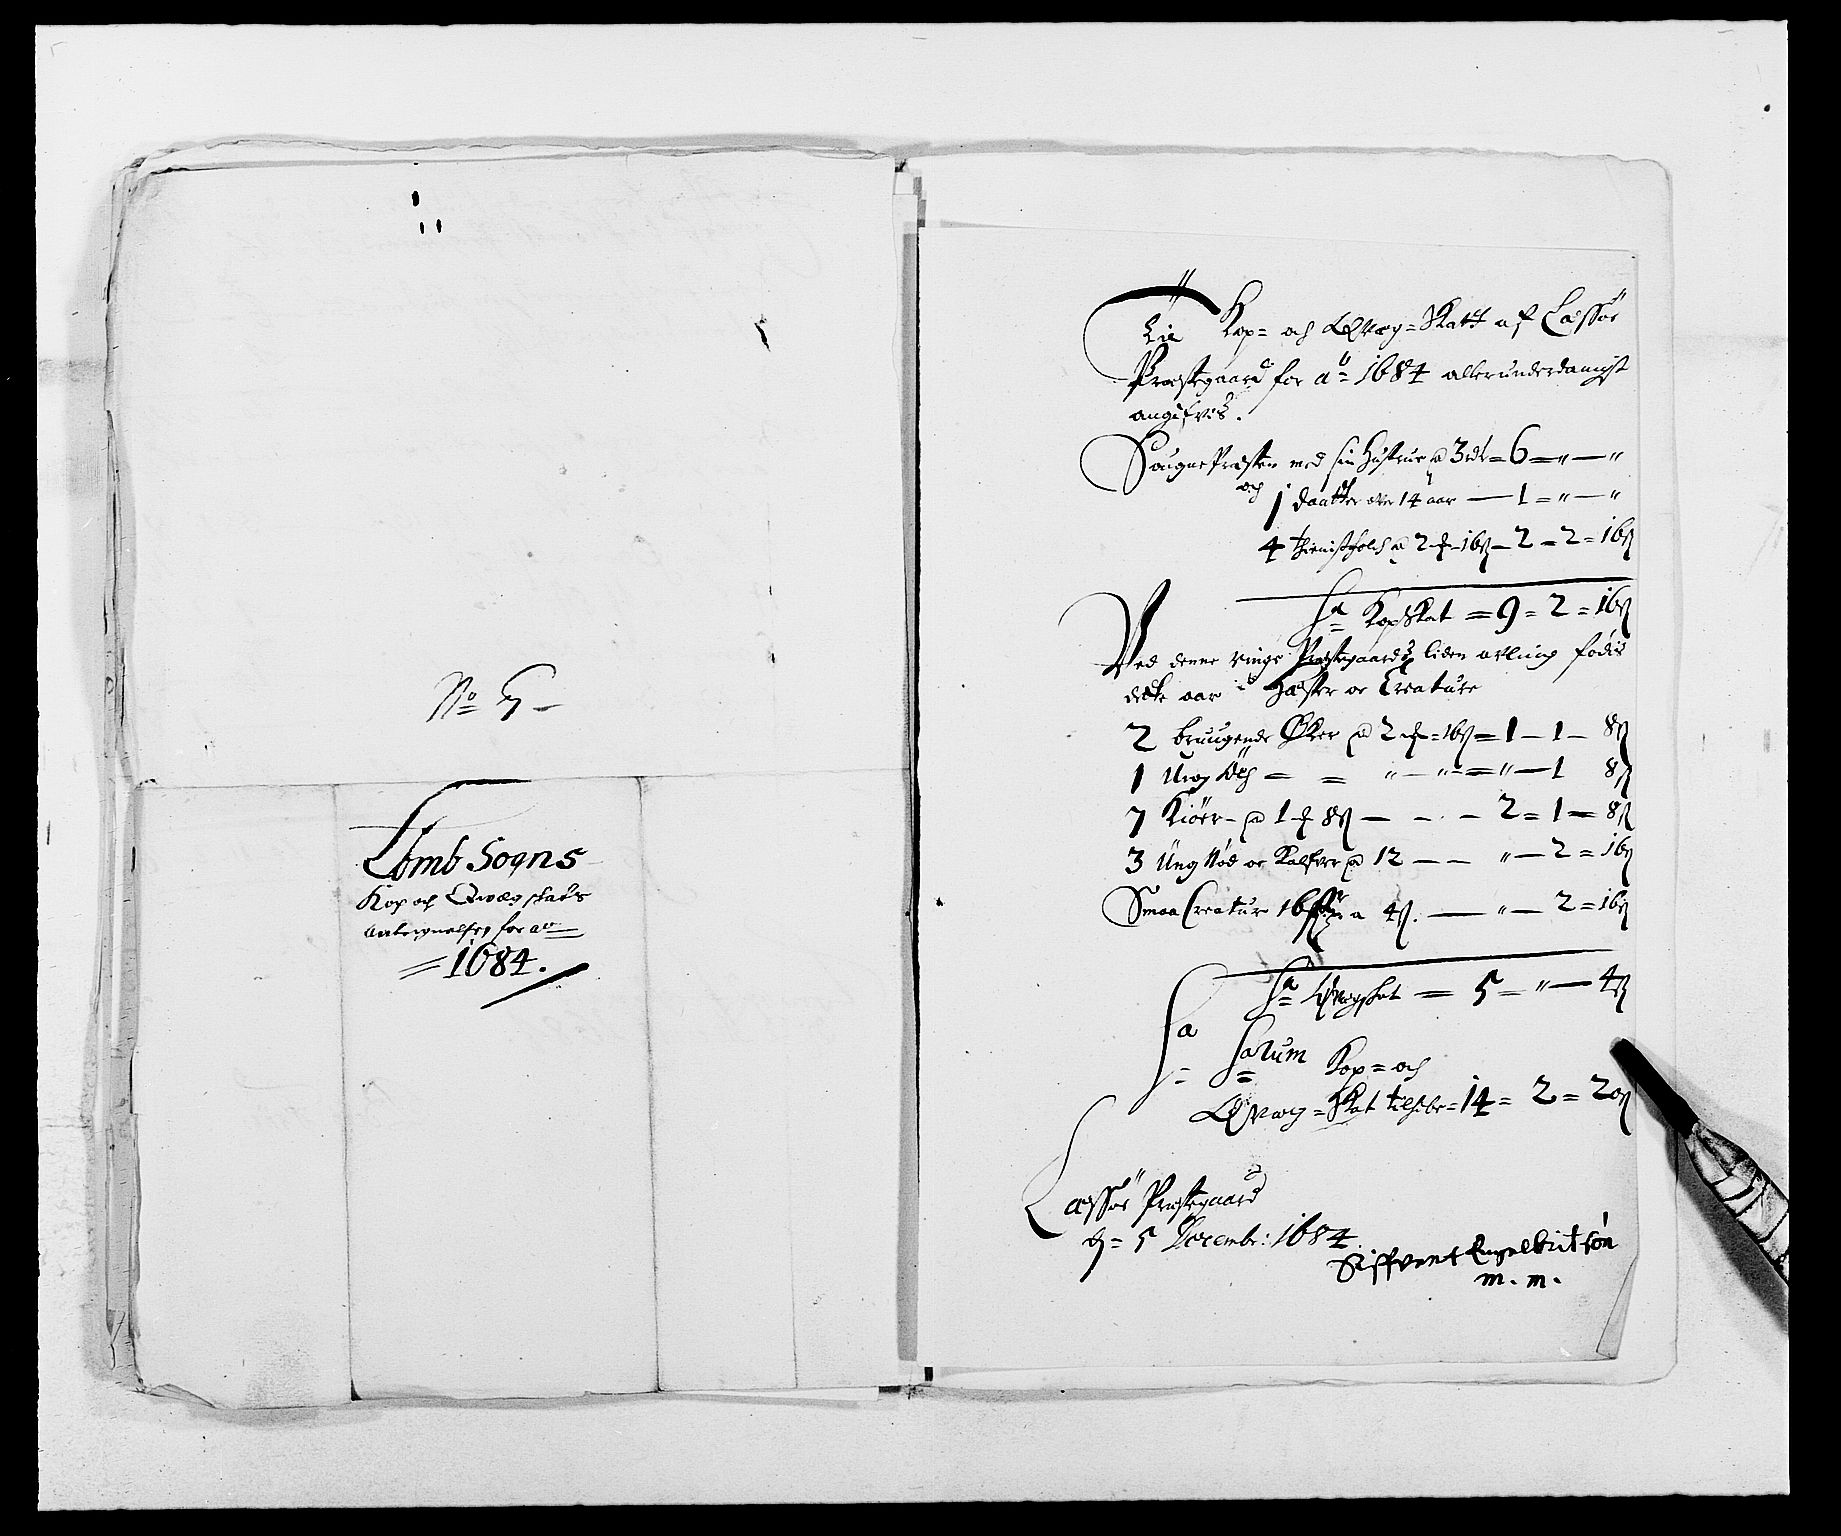 No 7
Lomb Sogns
Kop och Qvæg skats
for ao
1684.
Til Kop= och Qvæg=Skatt af Læssöe
Præstegaard for ao 1684 allerunderdanigst
angifves.
SougnePræsten med sin Hustrue a 3 rdr = 6 = " — "
och 1 daatter ofver 14 aar — 1 = " — "
4 thienistfolch a 2 ₰ - 16 ß — 2 = 2 = 16 ß
Sa KopSkat = 9 = 2 = 16 ß
Ved denne ringe Præstegaards liden afling födis
dette aar i Hæster oc Creature
2 bruugende Öker a 2 ₰ = 16 ß = 1 — 1 — 8 ß
1 Ung Öeg = = " — " = " — 1 8 ß
7 Kiöer - a 1 ₰ 8 ß — - - 2 = 1 = 8 ß
3 Ung Nöd oc Kalfver a 12 — — " — 2 = 16 ß
Smaa Creatur 16 a 4 ß. — " — 2 = 16 ß
Sa Qvægskat = 5 = " — 4 ß
Sa Sarum Kop= och
Qvæg=Skat = 14 = 2 = 20 ß
Læssöe Præstegaard
d = 5 Decembr: 1684
Siffvent Engelbritsön
m. m.